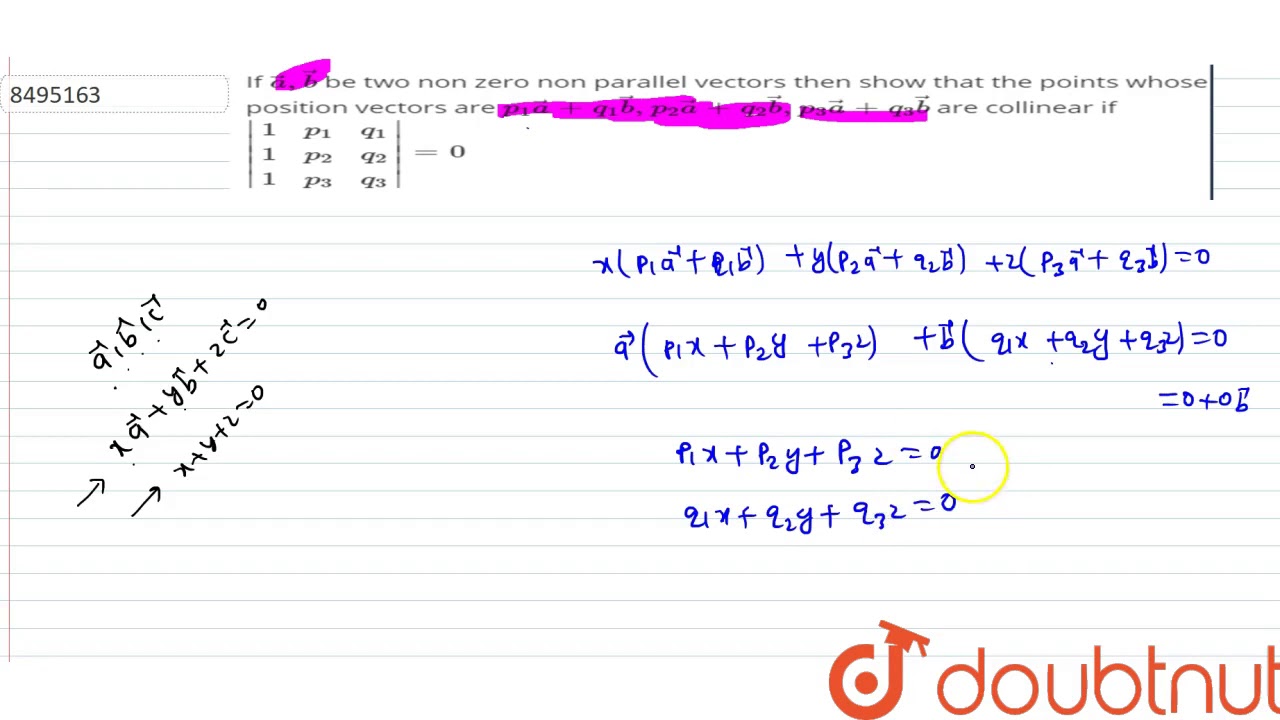 8495163
If a⃗, b⃗ be two non zero non parallel vectors then show that the points whose
position vectors are p₁a⃗ + q₁b⃗, p₂a⃗ + q₂b⃗, p₃a⃗ + q₃b⃗ are collinear if
|1 p₁ q₁|
|1 p₂ q₂| = 0
|1 p₃ q₃|
x(p₁a⃗ + q₁b⃗) + y(p₂a⃗ + q₂b⃗) + z(p₃a⃗ + q₃b⃗) = 0
a⃗, b⃗, c⃗
xa⃗ + yb⃗ + zc⃗ = 0
x + y + z = 0
a⃗(p₁x + p₂y + p₃z) + b⃗(q₁x + q₂y + q₃z) = 0
= 0 + 0b⃗
p₁x + p₂y + p₃z = 0
q₁x + q₂y + q₃z = 0
doubtnut